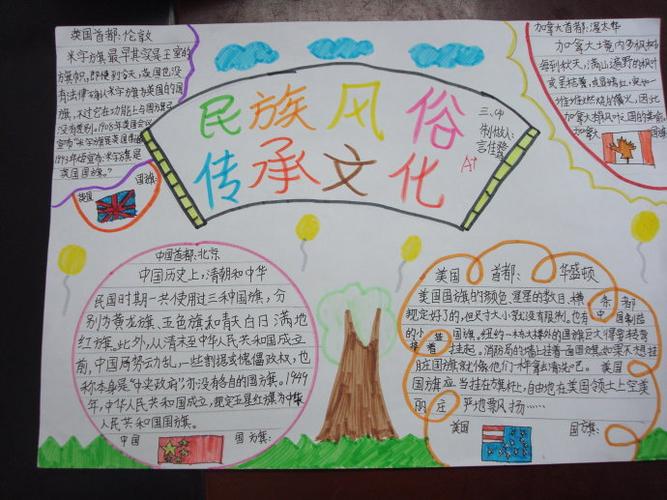 英国首都:伦敦
米字旗最早其实是王室的
旗帜,即使到今天,英国也没
有法律确认米字旗为英国的国
旗,不过它在功能上与国旗
没有差别。1908年英国
宣布"米字旗是英国
1933年
英国国旗。"
国旗:
英国
民族风俗
传承文化
三、(4)
制做人:
言佳
A+
加拿大首都:渥太华
加拿大境内多枫树
每到秋天,满山遍野的枫叶
或呈桔黄,或显
堆堆燃烧的篝火,因此
加拿大有枫叶之国的美誉。
加拿大
中国首都:北京
中国历史上,清朝和中华
民国时期一共使用过三种国旗,分
别为黄龙旗、五色旗和青天白日满地
红旗。此外,从清末至中华人民共和国成立
前,中国局势动乱,一些割据或傀儡政权,也
称本身是"中央政府"亦没有各自的国旗。1949
年,中华人民共和国成立,规定五星红旗为中华
人民共和国国旗。
中国 国旗:
美国 首都: 华盛顿
美国国旗的颜色、星星的数目、横条都
规定好了的,但尺寸大小就没有限制。也有中国制造
的小国旗。纽约一栋大楼外的国旗
挂着 挂起。消防局的墙上挂着一面国旗,如果不想挂
国旗当挂在旗杆上,自由地在美国领土上空美
丽 庄 严地飘扬……
美国 国旗: